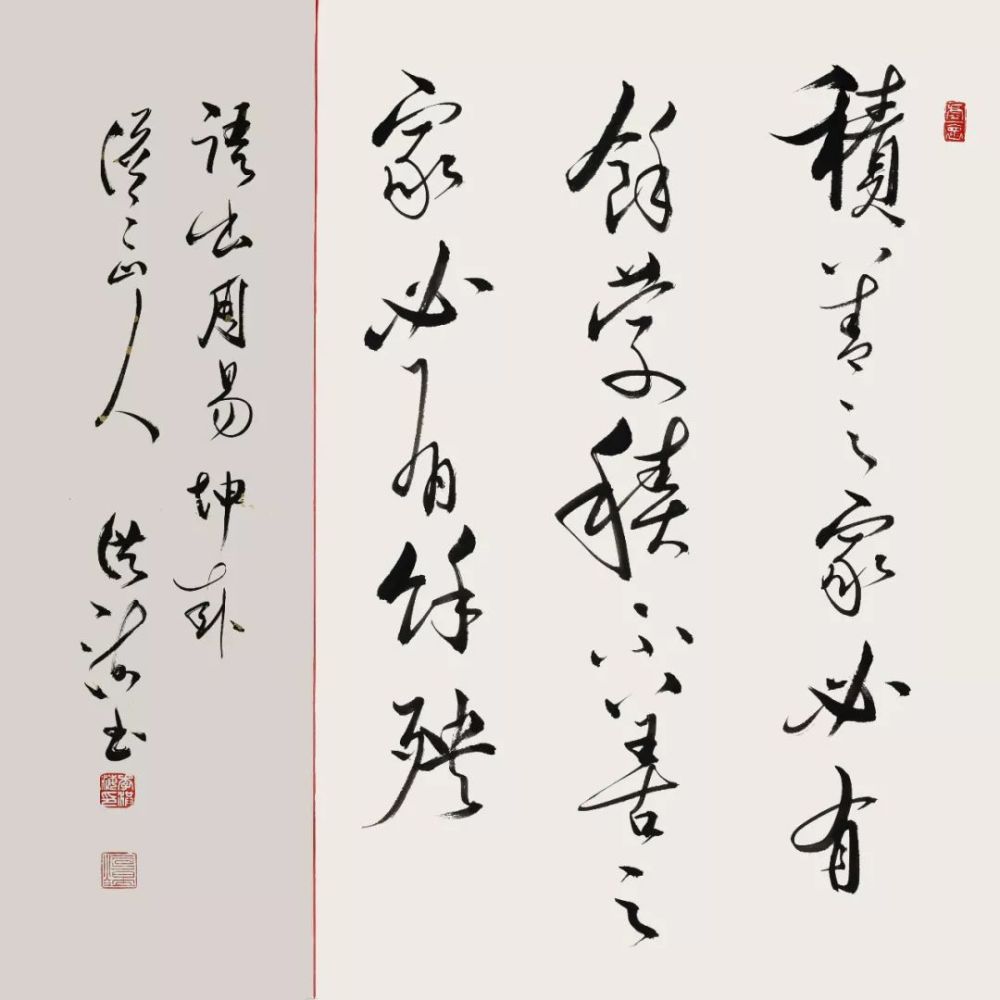 積善之家必有
餘慶積不善之
家必有餘殃
語出周易坤卦
山人 洪 書